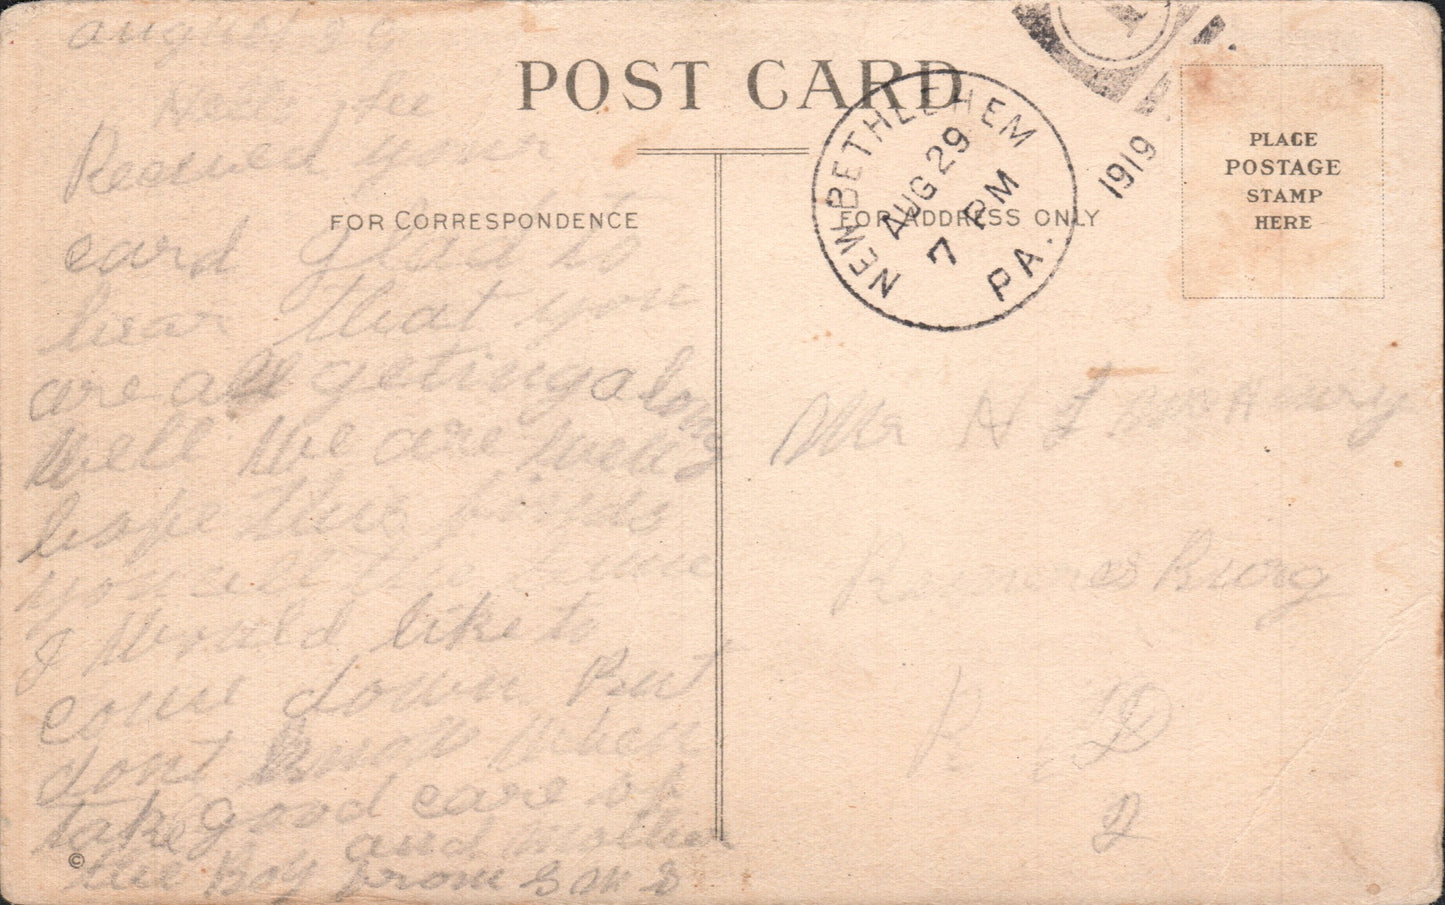 august
POST CARD
Received your
FOR CORRESPONDENCE
card glad to
hear that you
are all geting along
Well We are well
hope this finds
you all the same
I Would like to
come down But
dont know When
take good care of
the Boy and Mother
from S M S
©
NEW BETHLEHEM
PA.
AUG 29
7 PM
1919
FOR ADDRESS ONLY
PLACE
POSTAGE
STAMP
HERE
Mr H
Burg
R D
2